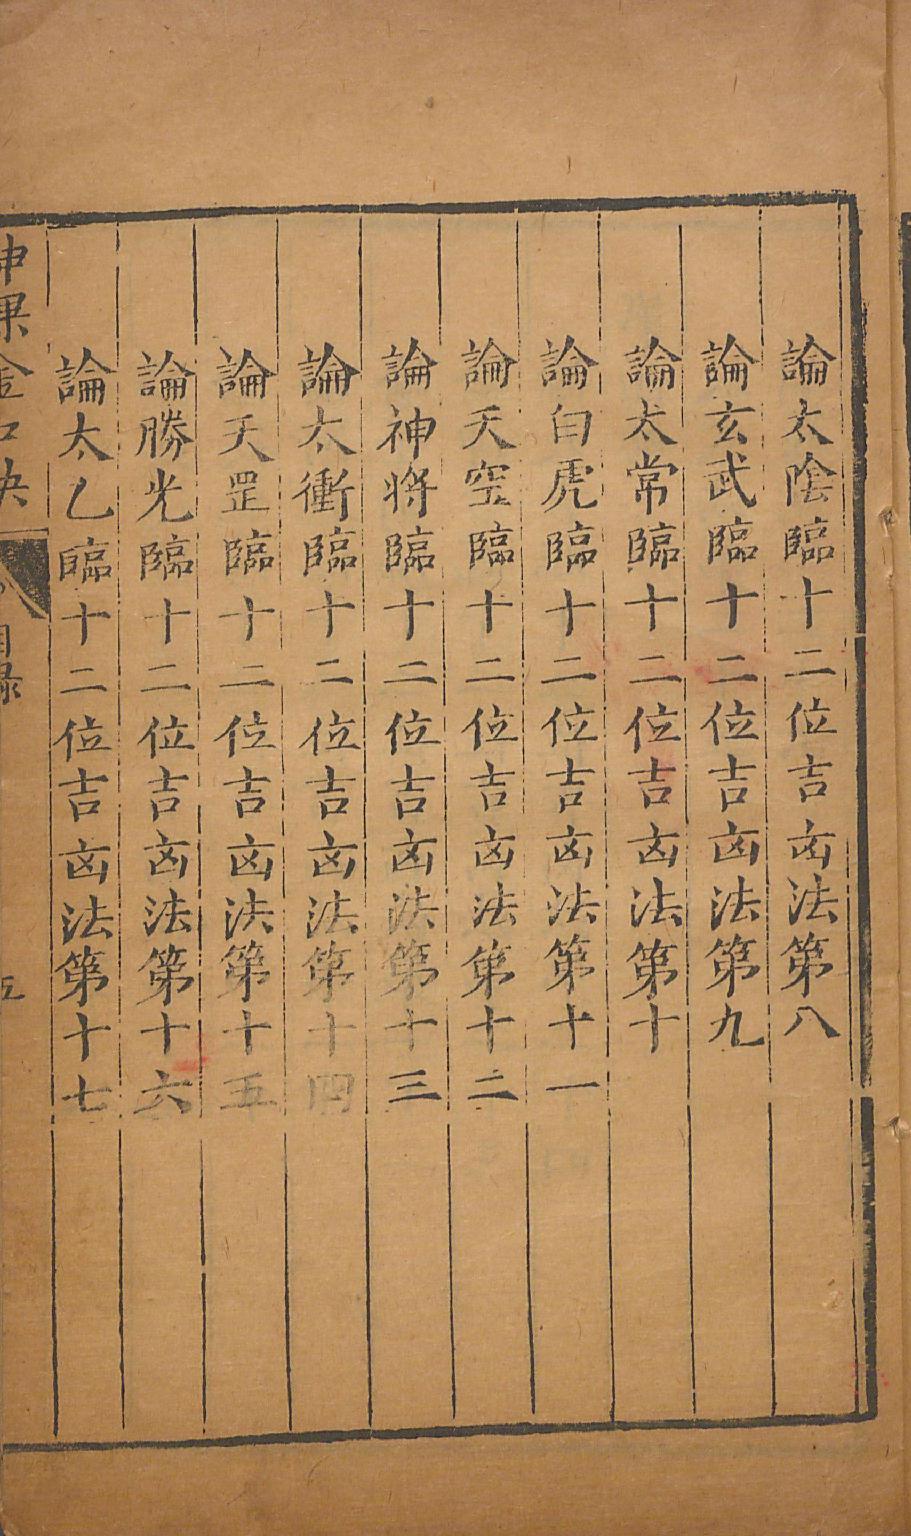 論太陰臨十二位吉㓙法第八
論玄武臨十二位吉㓙法第九
論太常臨十二位吉㓙法第十
論白虎臨十二位吉㓙法第十一
論天空臨十二位吉㓙法第十二
論神將臨十二位吉㓙法第十三
論太衝臨十二位吉㓙法第十四
論天罡臨十二位吉㓙法第十五
論勝光臨十二位吉㓙法第十六
論太乙臨十二位吉㓙法第十七
神課金口訣 目録 五